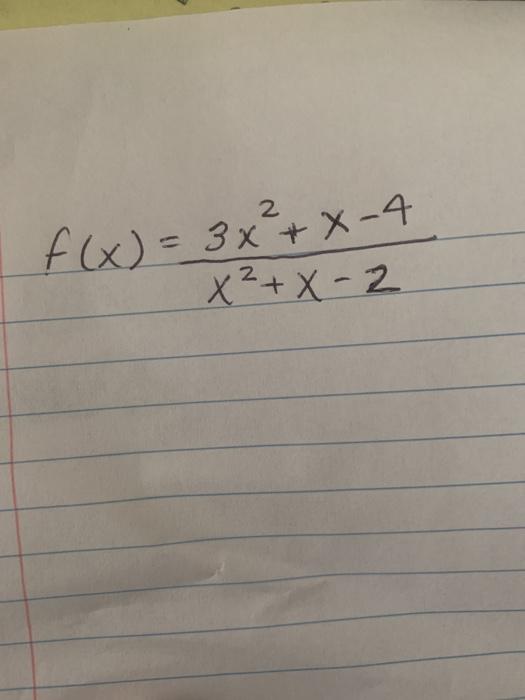 f(x) = 3x² + x - 4
x² + x - 2